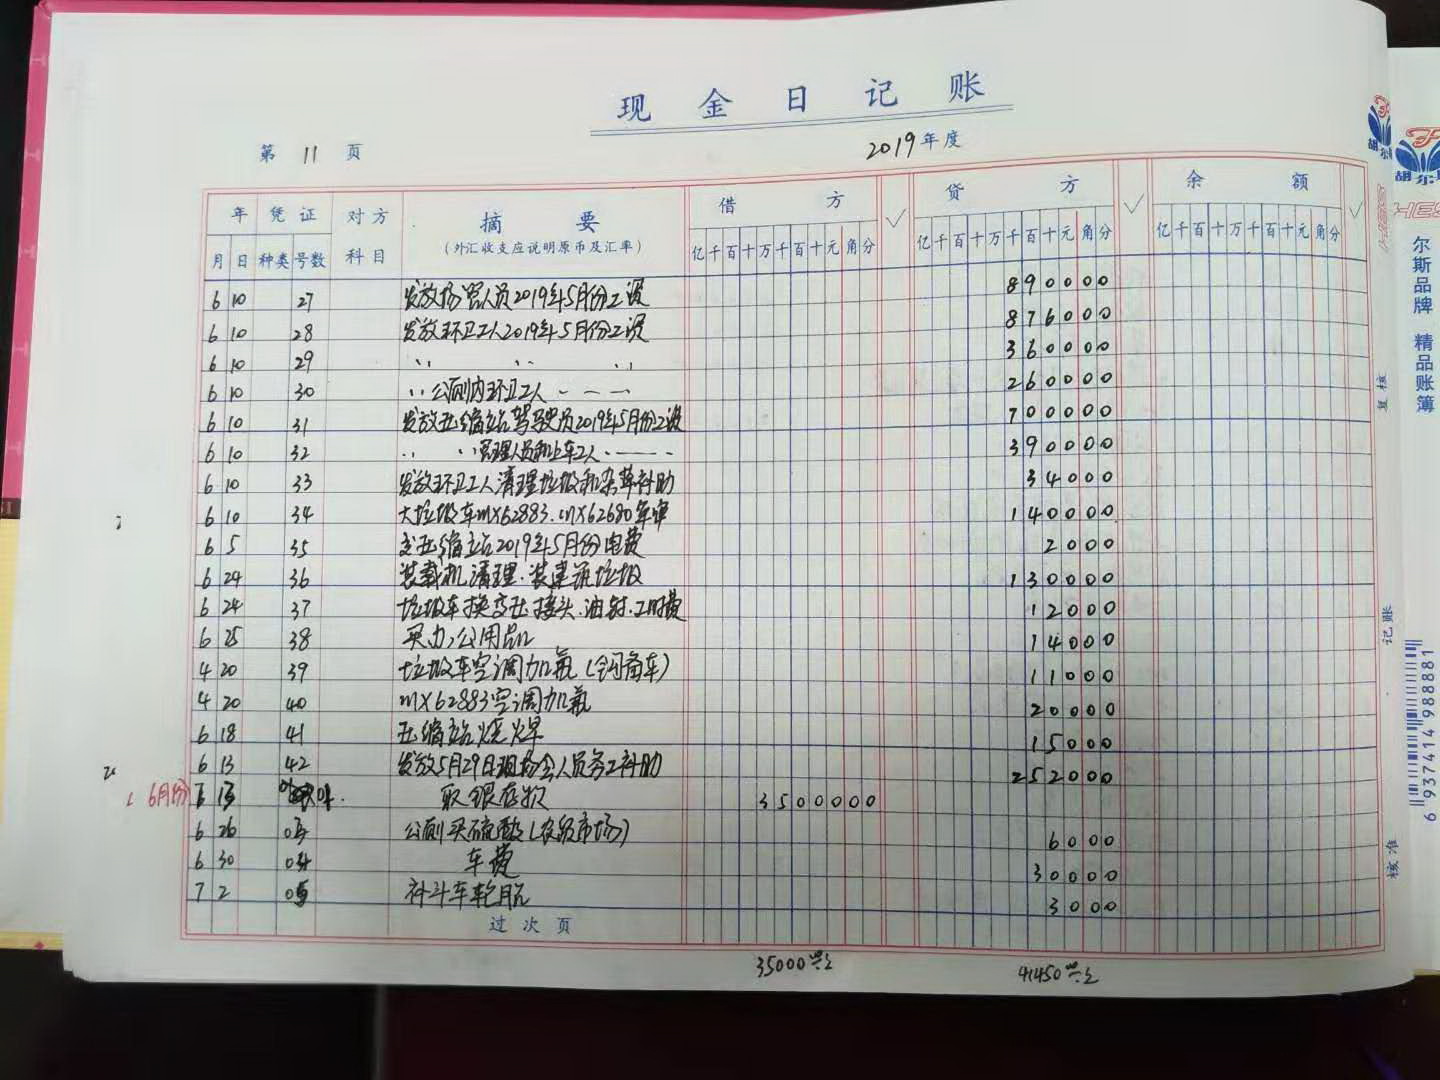 现金日记账
第 11 页
2019年度
年 凭证 对方科目 摘要 借方 ✓ 贷方 ✓ 余额 ✓
月 日 种类 号数 (外汇收支应说明原币及汇率) 亿千百十万千百十元角分 亿千百十万千百十元角分 亿千百十万千百十元角分
6 10 27 发放扬尘人员2019年5月份工资 890000
6 10 28 发放环卫工人2019年5月份工资 876000
6 10 29 〃 〃 〃 360000
6 10 30 〃公厕内环卫工人 - - - 260000
6 10 31 发放压缩站驾驶员2019年5月份工资 700000
6 10 32 〃 〃管理人员和上车工人 - - - 390000
6 10 33 发放环卫工人清理垃圾和杂草补助 34000
6 10 34 大垃圾车MX62883.MX62680年审 140000
6 5 35 交压缩站2019年5月份电费 2000
6 24 36 装载机清理.装建筑垃圾 130000
6 24 37 垃圾车换变压接头.油封.工时费 12000
6 25 38 买办公用品 14000
4 20 39 垃圾车空调加氟(钩角车) 11000
4 20 40 MX62883空调加氟 20000
6 18 41 压缩站烧焊 15000
6 13 42 发放5月29日现场会人员务工补助 252000
6月份 6 13 取银存款 3500000
6 26 03 公厕买硫酸(农贸市场) 6000
6 30 04 车费 30000
7 2 05 补斗车轮胎 3000
过次页
35000
41450
复核
记账
核准
胡尔斯
胡尔斯
HES
尔斯品牌 精品账簿
6937414988881